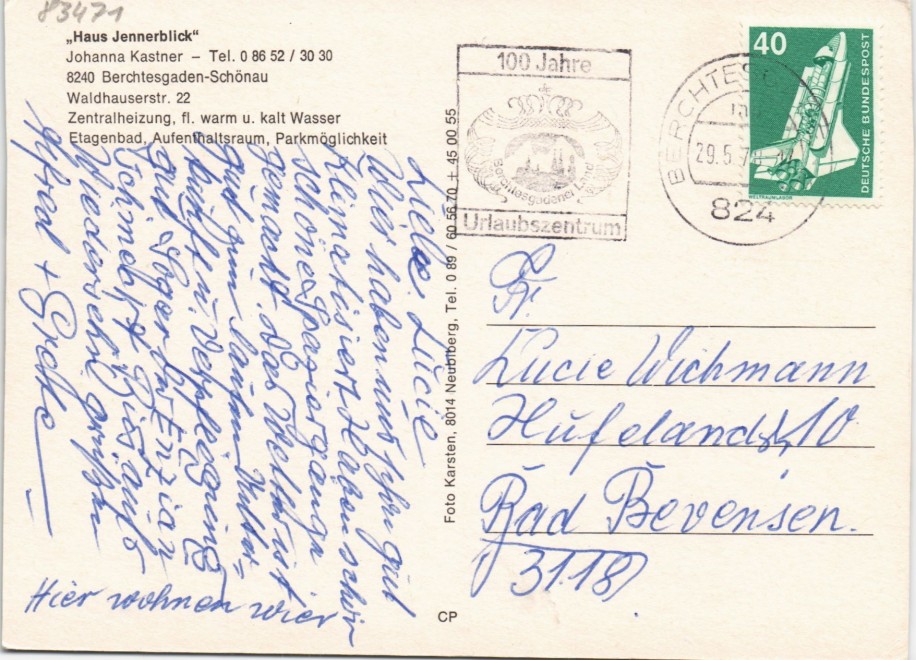 83471
„Haus Jennerblick"
Johanna Kastner – Tel. 0 86 52 / 30 30
8240 Berchtesgaden-Schönau
Waldhauserstr. 22
Zentralheizung, fl. warm u. kalt Wasser
Etagenbad, Aufenthaltsraum, Parkmöglichkeit
100 Jahre
Berchtesgadener Land
Urlaubszentrum
BERCHTES
29.5.7
824
40
DEUTSCHE BUNDESPOST
WELTRAUMLABOR
Foto Karsten, 8014 Neubiberg, Tel. 0 89 / 60 56 70 + 45 00 55
CP
Liebe Lucie
Wir haben uns sehr gut
klimatisiert haben schon
schöne Spaziergänge
gemacht. das Wetter ist
gut zum laufen. Unter-
kunft u. Verpflegung
gut sogar
Bis aufs
Wiedersehn grüßen
Alfred +
Hier wohnen wier
Fr.
Lucie Wichmann
Hufelandstr. 10
Bad Bevensen.
3118